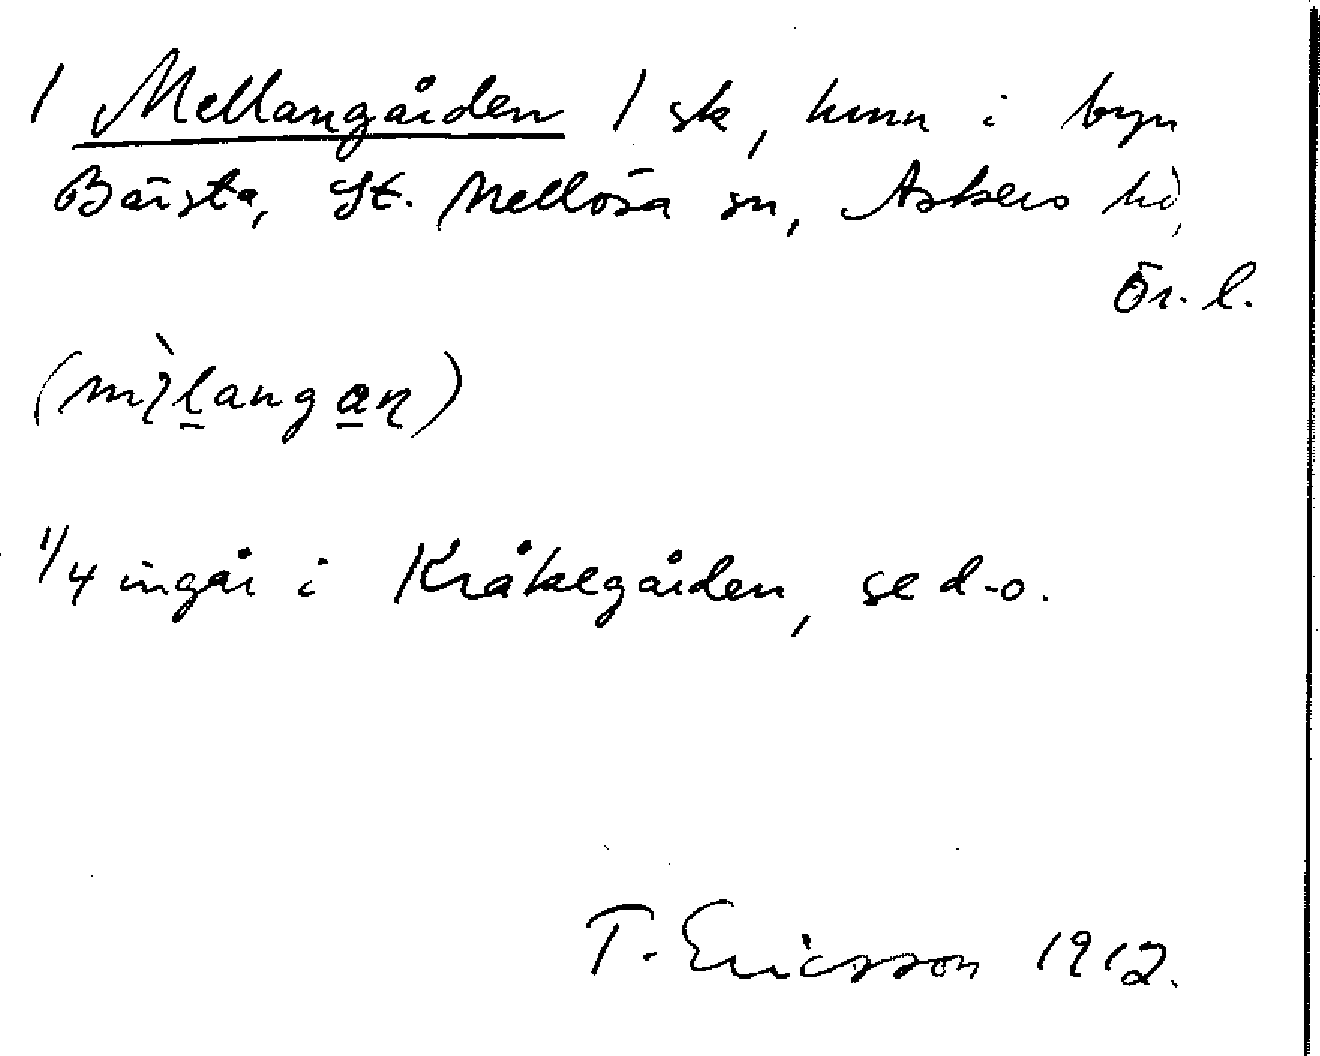 / Mellangården / sk, hmn i byn
Bärsta, St. Mellösa sn, Askers hd,
Ör. l.
1/4 ingår i Kråkegården, se d-o.
T. Ericsson 1912.